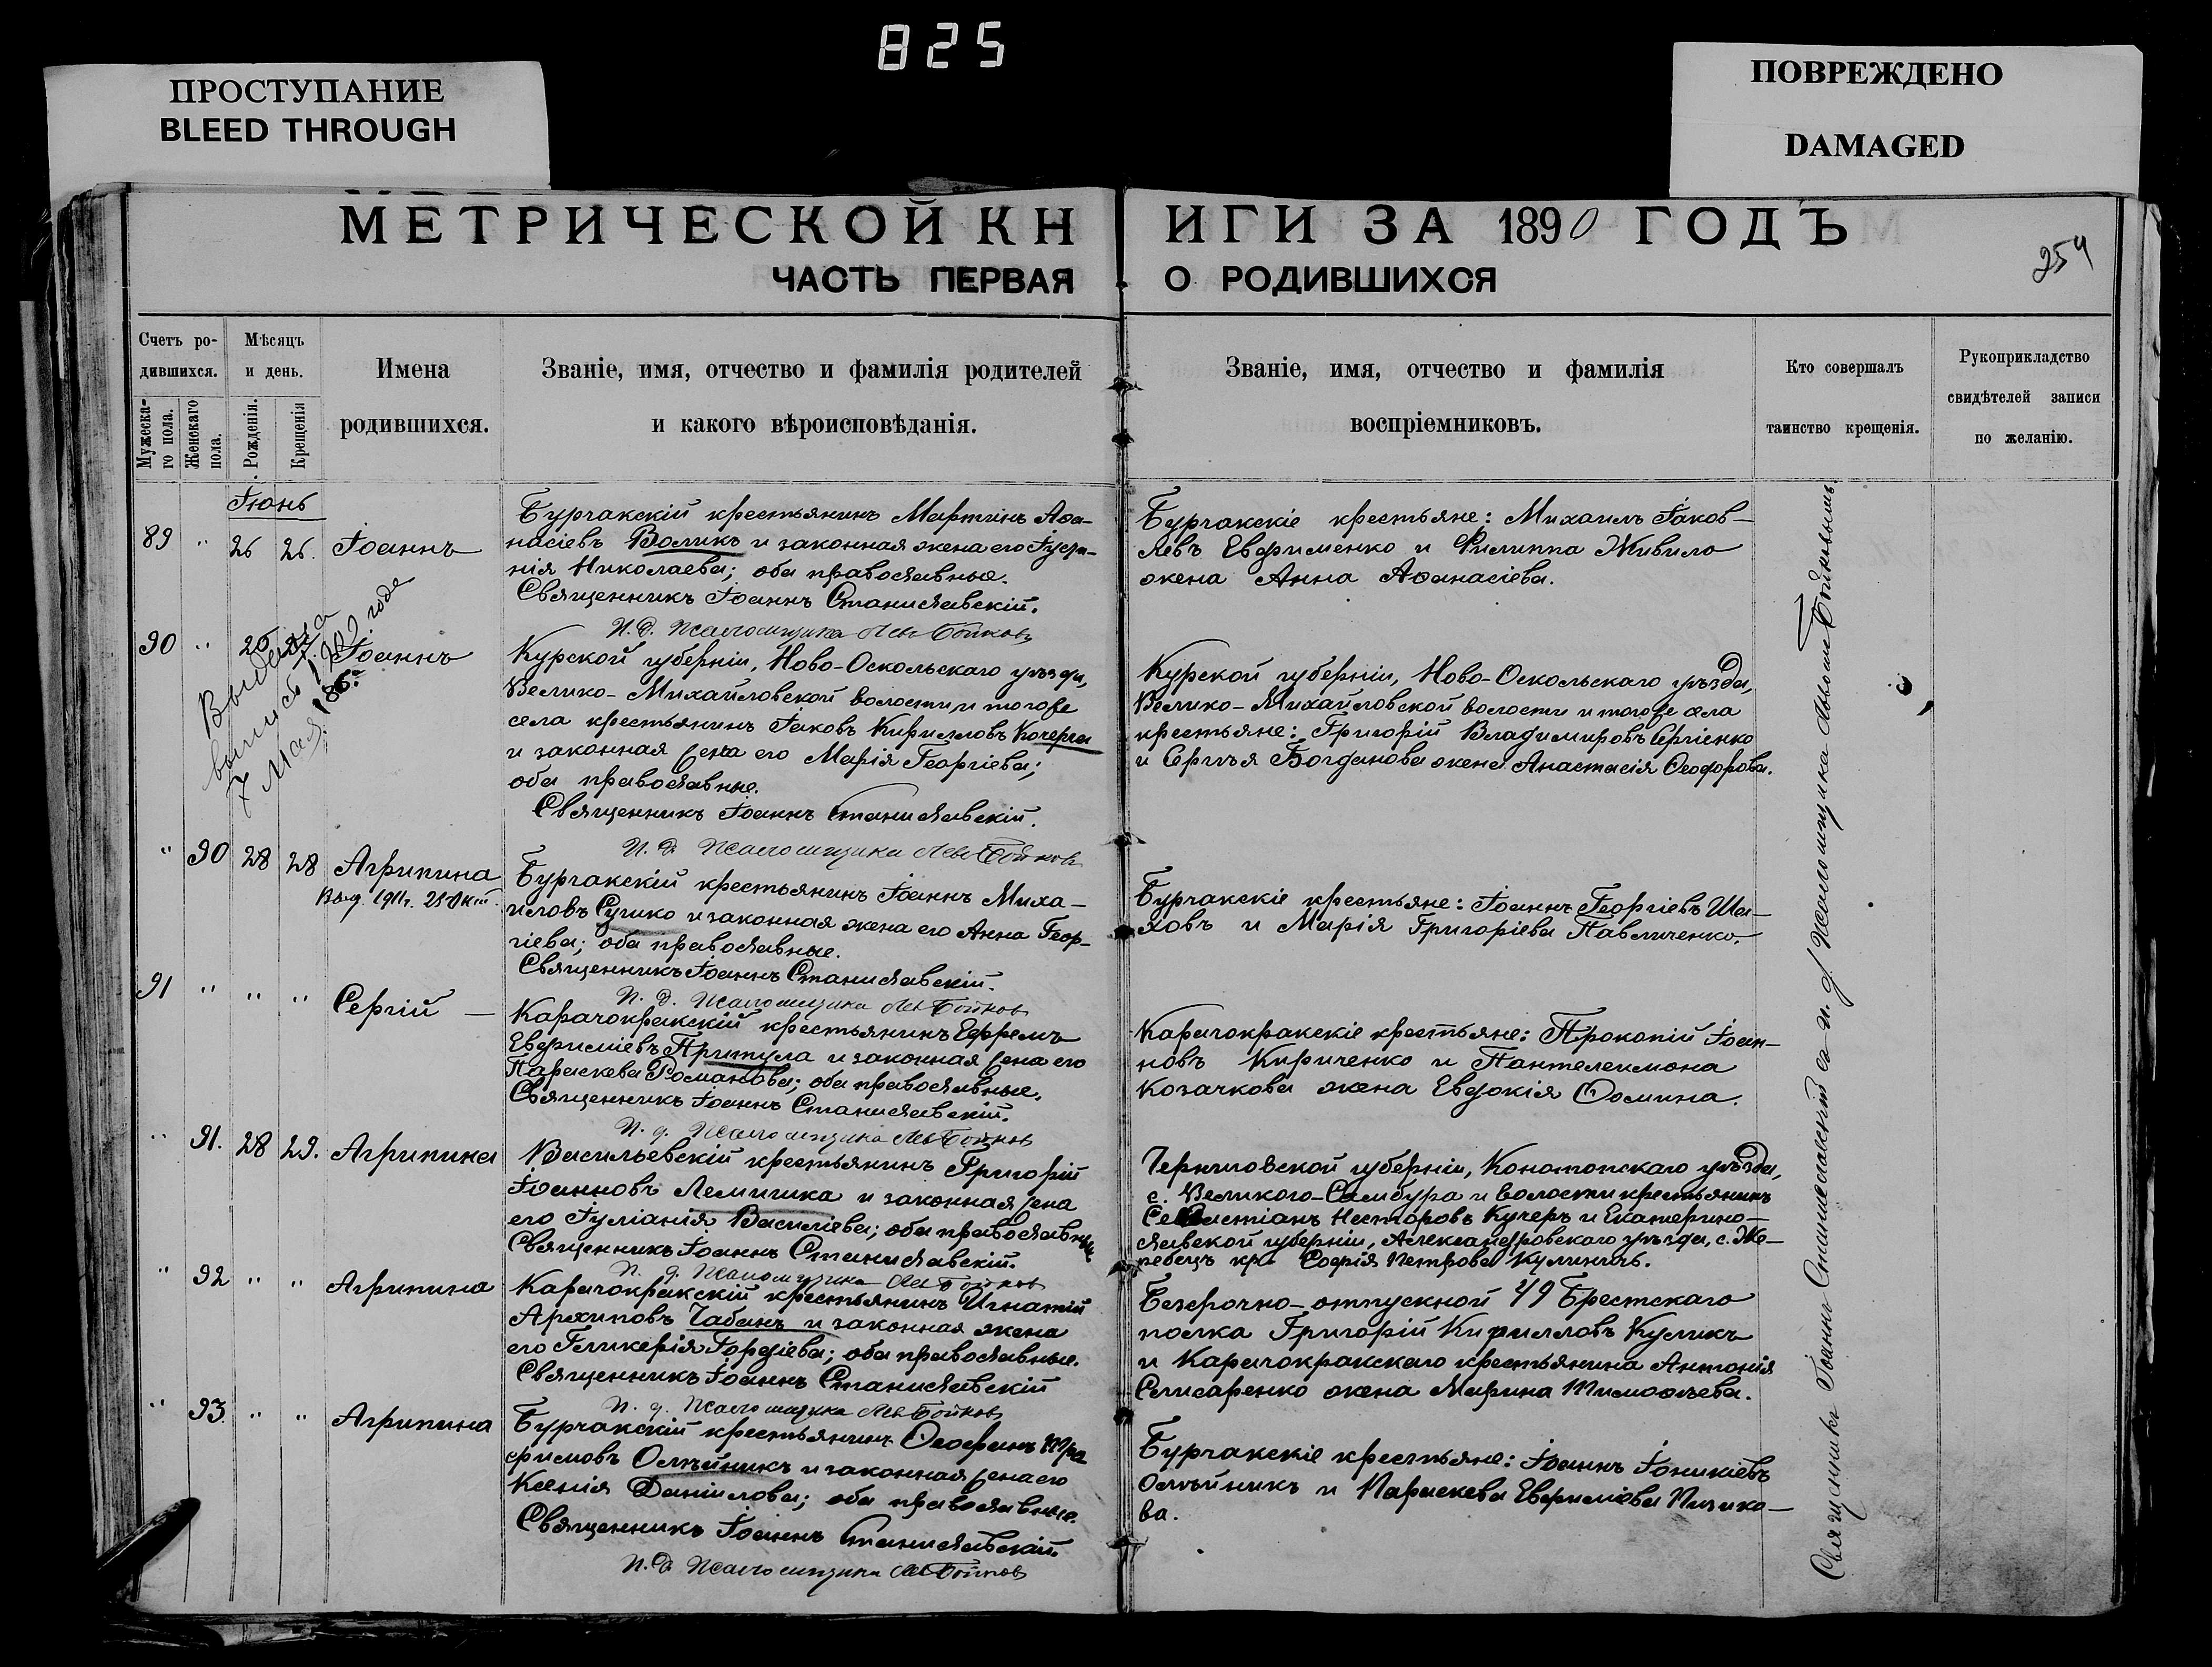 825
ПРОСТУПАНИЕ
BLEED THROUGH
ПОВРЕЖДЕНО
DAMAGED
МЕТРИЧЕСКОЙ КНИГИ ЗА 1890 ГОДЪ
ЧАСТЬ ПЕРВАЯ О РОДИВШИХСЯ
254
Счетъ ро-
дившихся.
Мужеска-
го пола.
Женскаго
пола.
Мѣсяцъ
и день.
Рожденія.
Крещенія
Имена
родившихся.
Званіе, имя, отчество и фамилія родителей
и какого вѣроисповѣданія.
Званіе, имя, отчество и фамилія
воспріемниковъ.
Кто совершалъ
таинство крещенія.
Рукоприкладство
свидѣтелей записи
по желанію.
Іюнь
89 " 26 26. Іоаннъ
Бурчакскій крестьянинъ Мартинъ Аѳа-
насіевъ Воликъ и законная жена его
Николаева; оба православные.
Священникъ Іоаннъ Станиславскій.
И. д. псаломщика Левъ Бойковъ
Бурчакскіе крестьяне: Михаилъ Іаков-
левъ Евфименко и Филиппа Живило
жена Анна Аѳанасіева.
90 " Іоаннъ
Выдана
выпись
1909 года
7 Мая
186.
Курской губерніи, Ново-Оскольскаго уѣзда,
Велико-Михайловской волости и того же
села крестьянинъ Іаковъ Кирилловъ Кочерга
и законная жена его Марія Георгіева;
оба православные.
Священникъ Іоаннъ Станиславскій.
И. д. псаломщика Левъ Бойковъ
Курской губерніи, Ново-Оскольскаго уѣзда,
Велико-Михайловской волости и того же села
крестьяне: Григорій Владимировъ Сергіенко
и Сергѣя Богданова жена Анастасія Ѳеодорова.
" 90 28 28 Агрипина
Выд. 1911г. 21 Окт.
Бурчакскій крестьянинъ Іоаннъ Миха-
иловъ Сушко и законная жена его Анна Геор-
гіева; оба православные.
Священникъ Іоаннъ Станиславскій.
И. д. псаломщика Левъ Бойковъ
Бурчакскіе крестьяне: Іоаннъ Георгіевъ Ша-
ховъ и Марія Григоріева Павличенко.
91 " " " Сергій
Карачокракскій крестьянинъ Ефремъ
Евфиміевъ Притула и законная жена его
Параскева Романова; оба православные.
Священникъ Іоаннъ Станиславскій.
И. д. псаломщика Левъ Бойковъ
Карачокракскіе крестьяне: Прокопій Іоан-
новъ Кириченко и Пантелеимона
Козачкова жена Евдокія Ѳомина.
" 91. 28 29. Агрипина
Васильевскій крестьянинъ Григорій
Іоанновъ Лемишка и законная жена
его Іуліанія Василіева; оба православные
Священникъ Іоаннъ Станиславскій.
И. д. псаломщика Левъ Бойковъ
Черниговской губерніи, Конотопскаго уѣзда,
с. Великого-Самбура и волости крестьянинъ
Севастіанъ Несторовъ Кучеръ и Екатерино-
славской губерніи, Александровскаго уѣзда, с. Же-
ребецъ кр. Софія Петрова Кулиничъ.
" 92 " " Агрипина
Карачокракскій крестьянинъ Игнатій
Архиповъ Чабанъ и законная жена
его Гликерія Гордіева; оба православные.
Священникъ Іоаннъ Станиславскій
И. д. псаломщика Левъ Бойковъ
Безсрочно-отпускной 49 Брестскаго
полка Григорій Кирилловъ Куликъ
и Карачокракскаго крестьянина Антонія
Слисаренко жена Марина Тимоѳѣева.
" 93. " " Агрипина
Бурчакскій крестьянинъ Ѳеофанъ Тро
фимовъ Олѣйникъ и законная жена его
Ксенія Даніилова; оба православные.
Священникъ Іоаннъ Станиславскій.
И. д. псаломщика Левъ Бойковъ
Бурчакскіе крестьяне: Іоаннъ Іоникіевъ
Олѣйникъ и Параскева Евфиміева
ва.
Священникъ Іоаннъ Станиславскій съ и. д. псаломщика Львомъ Бойковымъ.